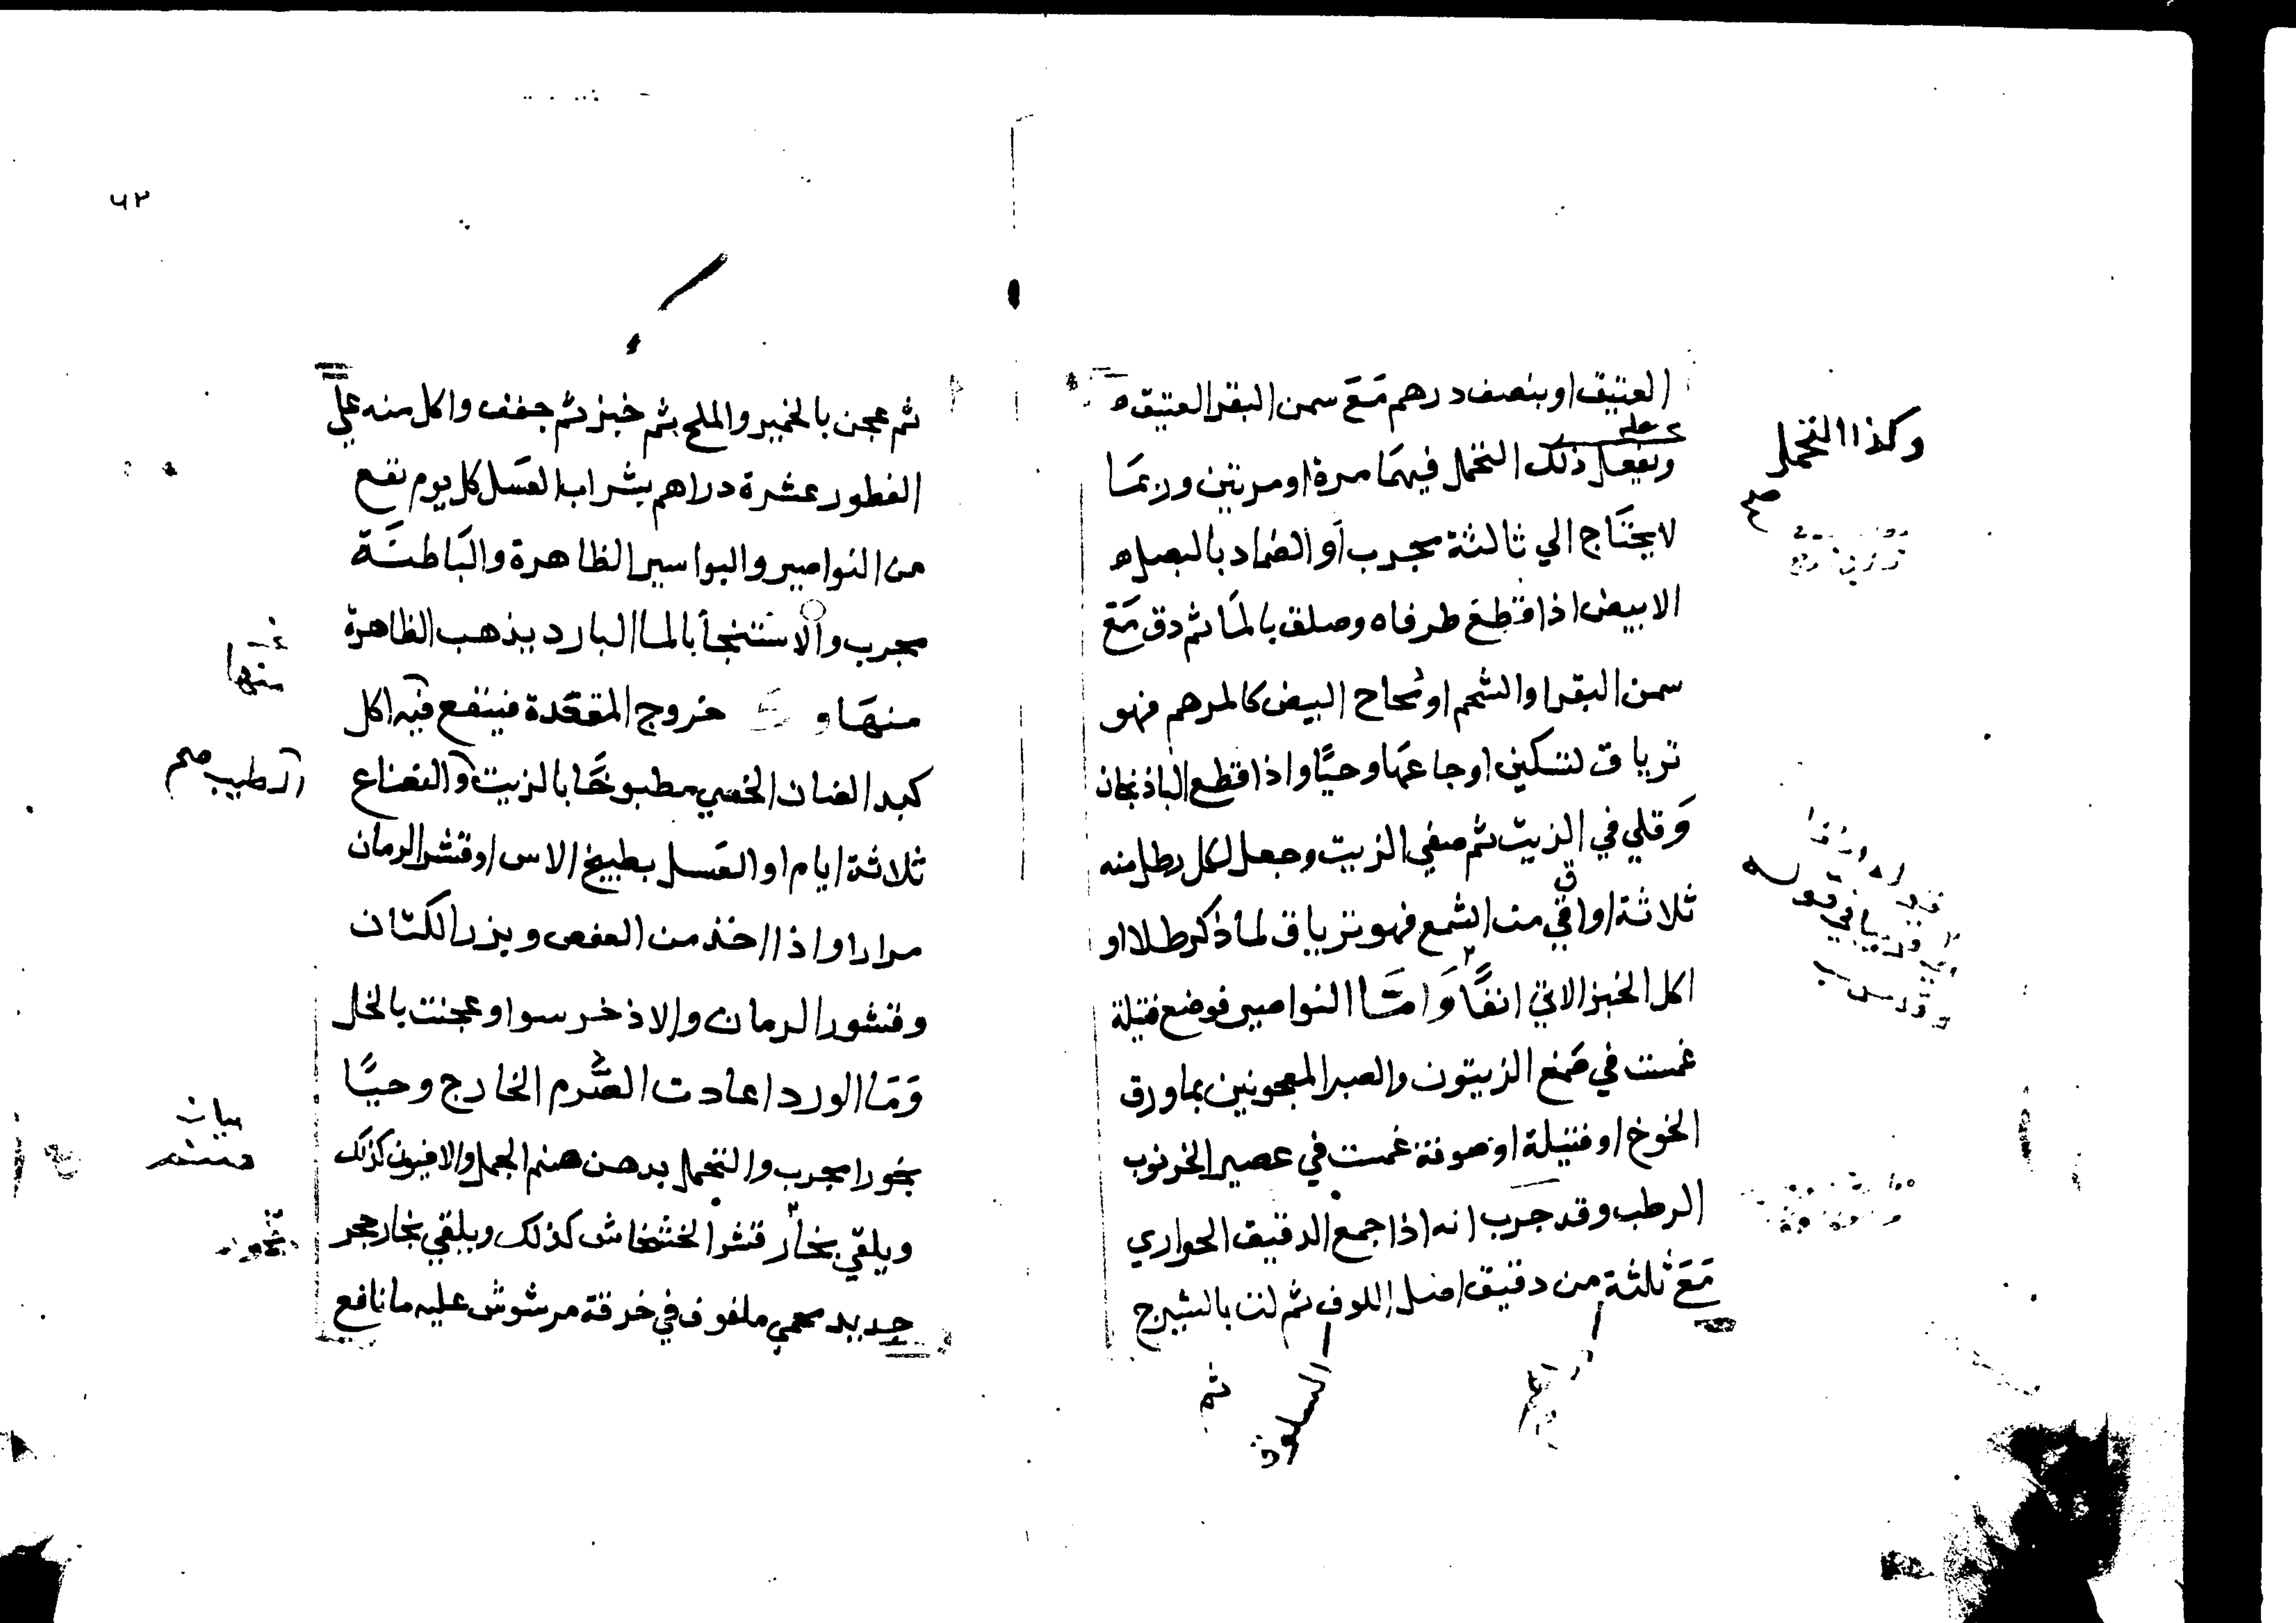 العتيق او بنصف درهم مَعَ سمن البقر العتيق
ويفعل ذلك التحمل فيهمَا مرة او مرتين وربمَا
لا يحتَاج الي ثالثة مجرب أو الضماد بالبصل
الابيض اذا قطع طرفاه وصلق بالمَا ثم دق مَعَ
سمن البقر او الشحم او محاح البيض كالمرهم فهو
ترياق لتسكين اوجاعهَا وحيًّا واذا قطع الباذنجان
وَقلي في الزيت ثم صفي الزيت وجعل لكل رطل منه
ثلاثة اواقي من الشمع فهو ترياق لما ذكر طلا او
اكل الخبز الاتي انفًا وَامَّا النواصير فوضع فتيلة
غمست في صَمغ الزيتون والصبر المعجونين بما ورق
الخوخ او فتيلة او صوفة غمست في عصير الخرنوب
الرطب وقد جرب انه اذا جمع الدقيق الحواري
مَعَ ثلثة من دقيق اصل اللوف ثم لت بالشيرج
ثم
وكذا التحمل
صح
ثم عجن بالخمير والملح ثم خبز ثم جفف واكل منه علي
الفطور عشرة دراهم بشراب العَسل كل يوم نفع
من النواصير والبواسير الظاهرة والبَاطنَة
مجرب والاستنجأ بالما البارد يذهب الظاهرة
منهَا و خروج المقعَدة فينفع فيه اكل
كبد الضان الخصي مطبوخًا بالزيت والنعناع
ثلاثة ايام او العَسل بطبيخ الاس او قشر الرمان
مرارا واذا اخذ من العفص وبزر الكتان
وقشور الرمان والاذخر سوا وعجنت بالخل
وَمَا الورد اعادت الصُّرم الخارج وحيًّا
بخورا مجرب والتحمل بدهن صنم الجمل والافيون كذلك
ويلقي بخار قشر الخشخاش كذلك ويلقي بخار حجر
جديد محمي ملفوف في خرقة مرشوش عليه ما نافع
منها
الطيب صح